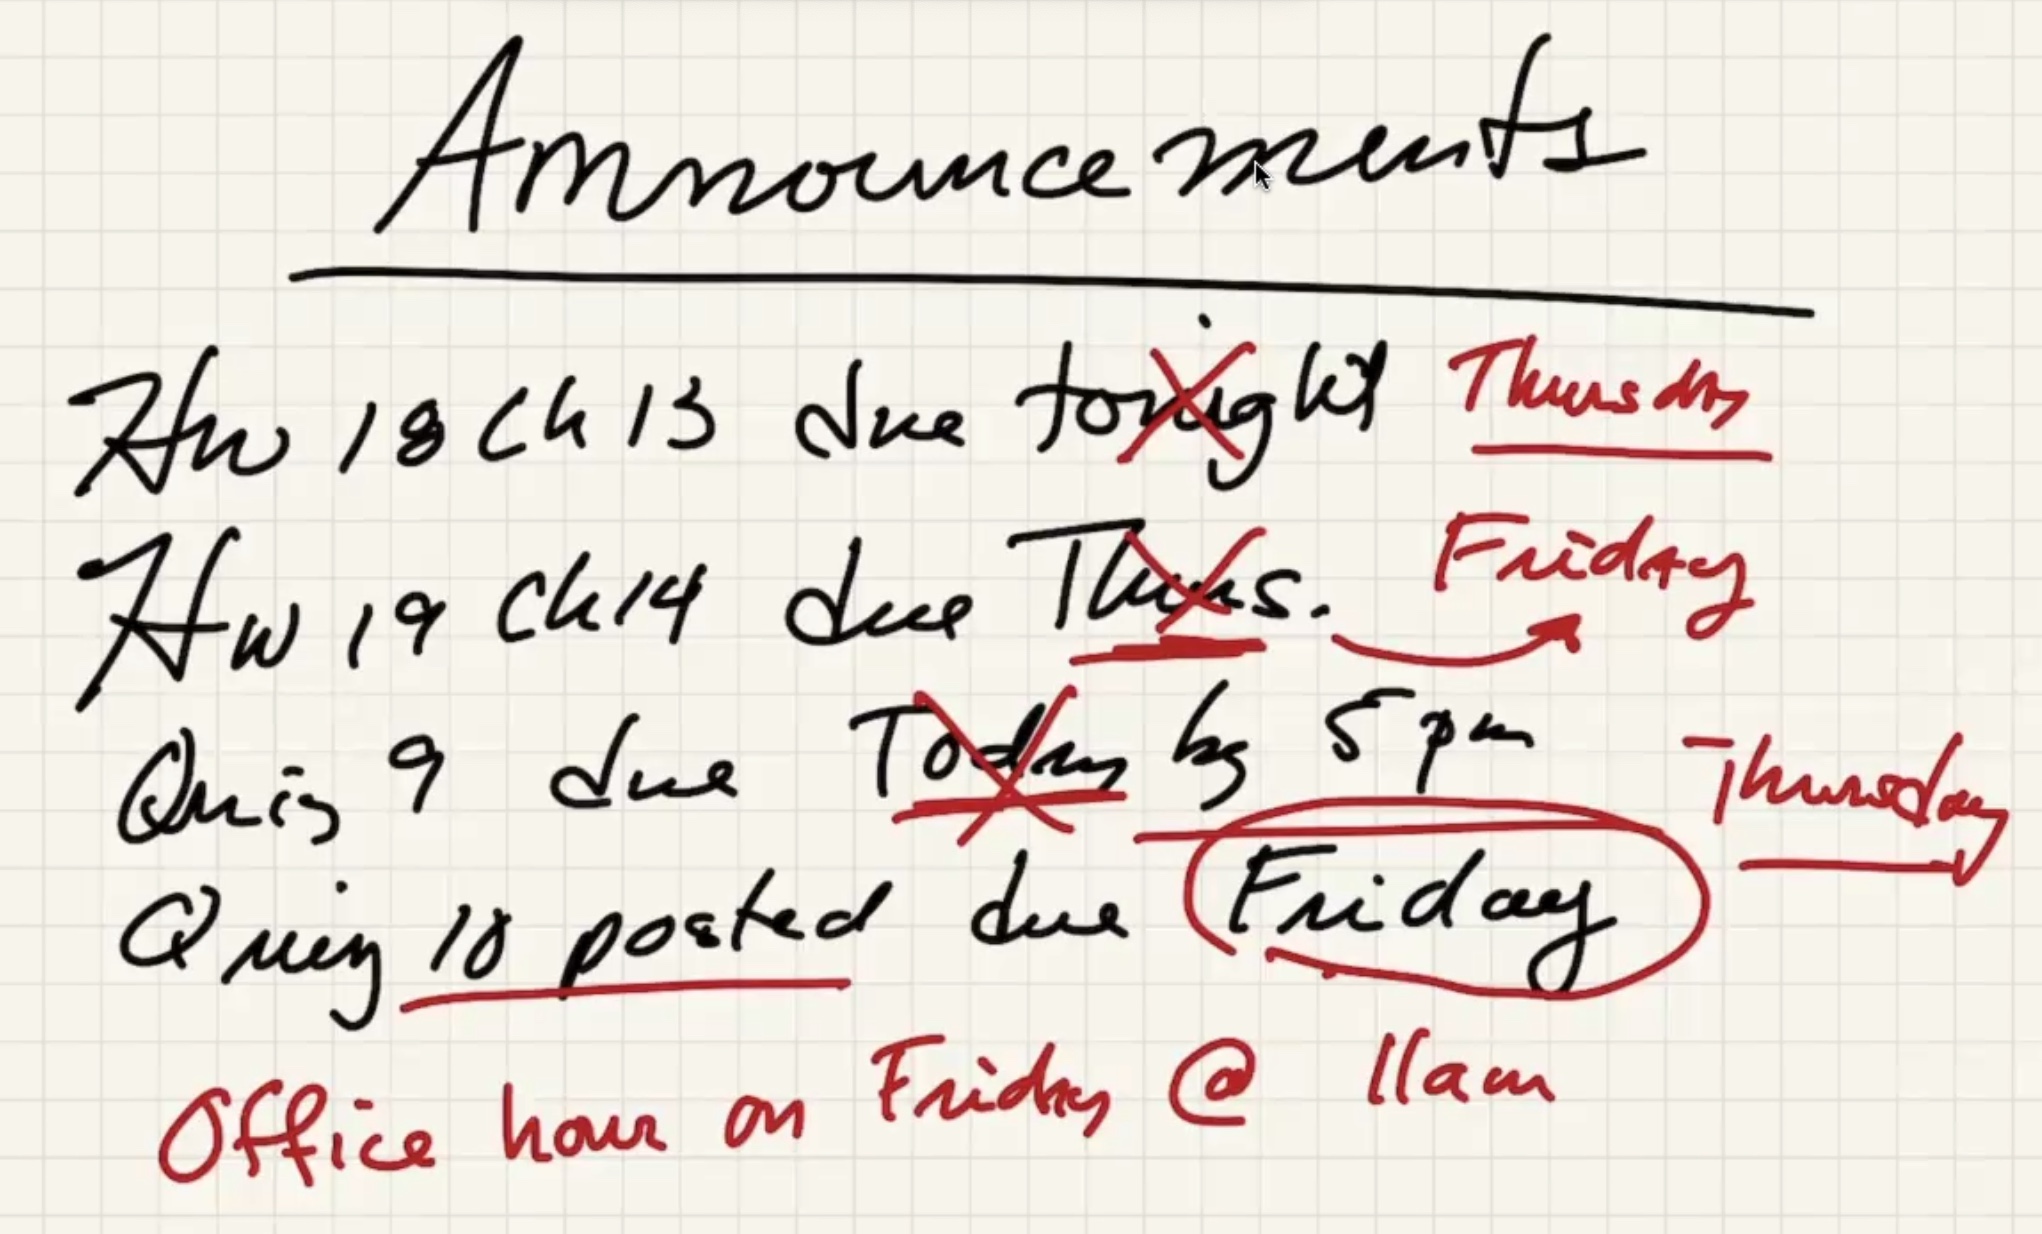 Announcements
Hw 18 Ch 13 due tonight Thursday
Hw 19 Ch 14 due Thurs. Friday
Quiz 9 due Today by 5 pm Thursday
Quiz 10 posted due Friday
Office hour on Friday @ 11am